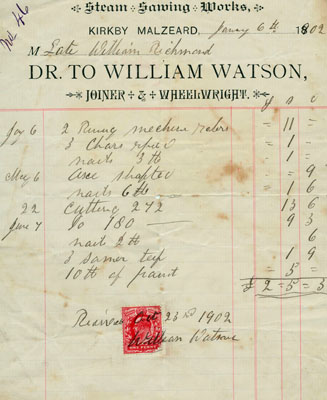 No 46
Steam Sawing Works,
KIRKBY MALZEARD, Jany 6th 1902
M Late William Richmond
DR. TO WILLIAM WATSON,
JOINER & WHEELWRIGHT.
£ s d
Jay 6 2 mechine = 11 =
3 Chars = 1 =
nails 3 lb = 1 =
May 6 axe shafted = = 9
nails 6 lb = 1 6
22 Cutting 272 13 6
June 7 Do 180 — 9 3
nails 2 lb 6
3 1 9
10 lb of paint = 5 =
£ 2 = 5 = 3
Received Oct 23rd 1902
William Watson